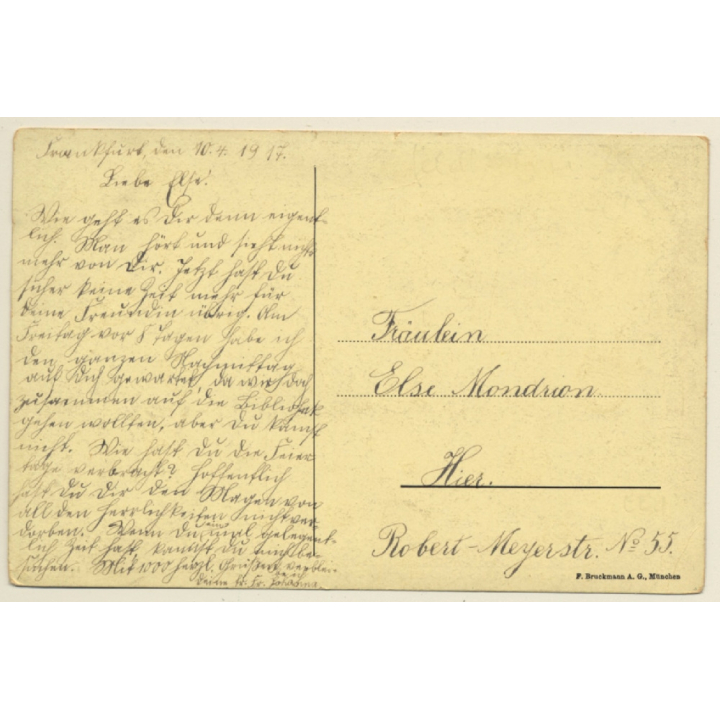 Frankfurt, den 10.4.1917.
Liebe Else!
Wie geht es Dir denn eigent-
lich. Man hört und sieht nichts
mehr von Dir. Jetzt hast Du
sicher keine Zeit mehr für
Deine Freundin übrig. Am
Freitag vor 8 Tagen habe ich
den ganzen Nachmittag
auf Dich gewartet, da wir doch
zusammen auf die Bibliothek
gehen wollten, aber Du kamst
nicht. Wie hast Du die Feier
tage verbracht? Hoffentlich
hast Du Dir den Magen von
all den Herrlichkeiten nicht ver
dorben. Wenn Du mal gelegent-
lich Zeit hast kannst Du mich be-
suchen. Mit 1000 herzl. Grüßen verbleibe
Deine tr. Fr. Johanna.
Fräulein
Else Mondrion
Hier.
Robert-Meyerstr. No 55.
F. Bruckmann A. G., München